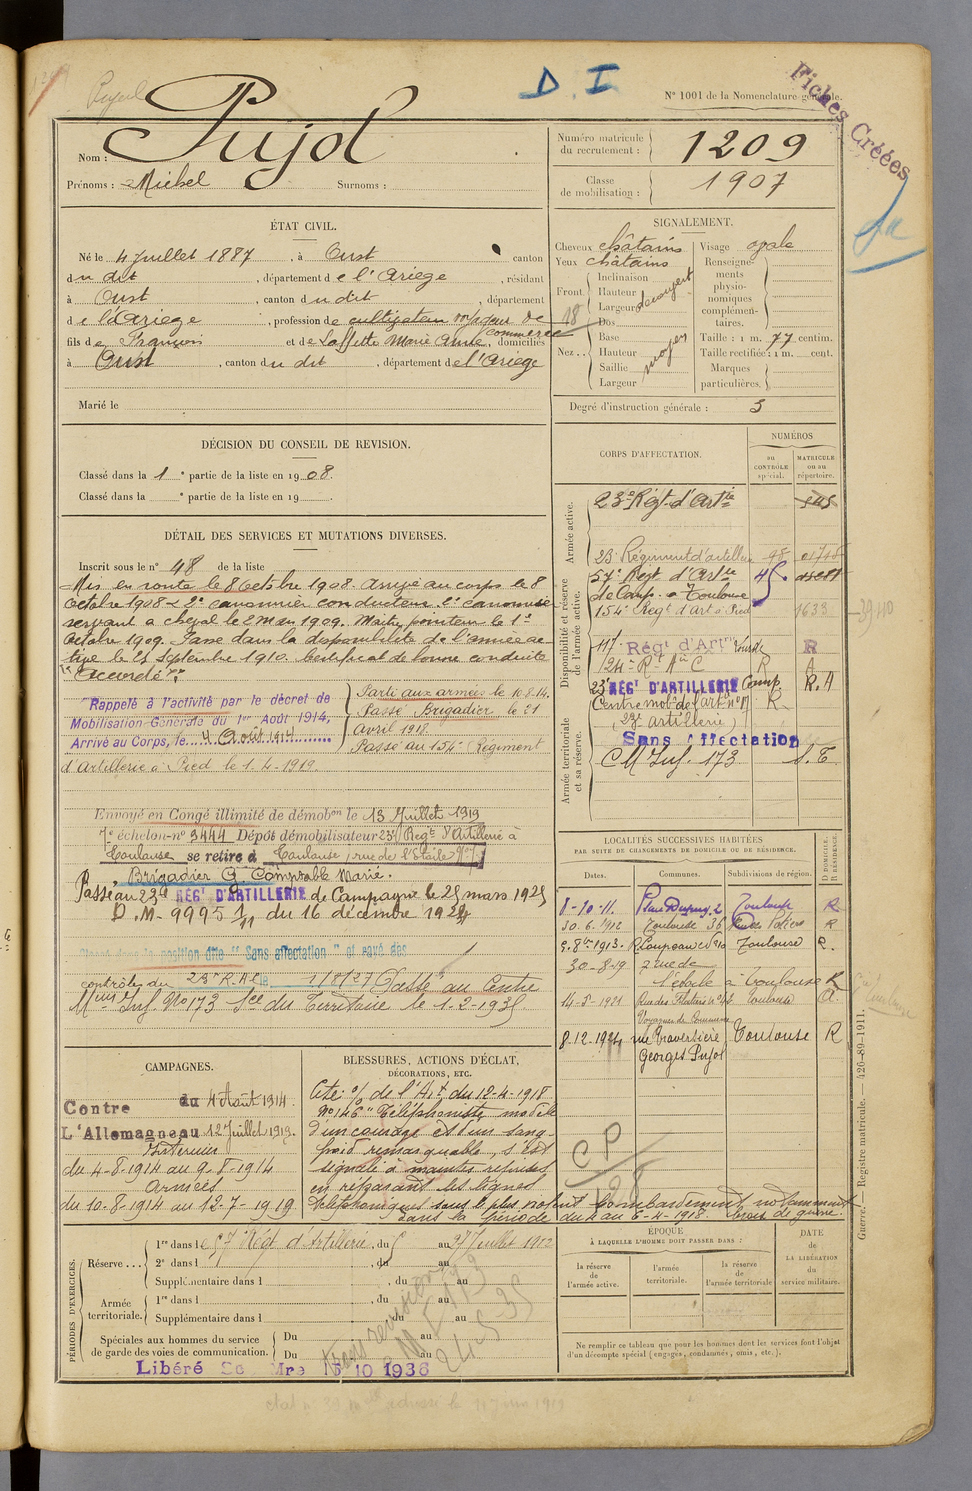 D. I
N° 1001 de la Nomenclature générale.
Fiches Créées
Pujol
Nom : Pujol
Prénoms : Michel Surnoms :
Numéro matricule du recrutement : 1209
Classe de mobilisation : 1907
ÉTAT CIVIL.
Né le 4 Juillet 1887, à Oust canton
du dit, département de l'Ariège, résidant
à Oust, canton du dit, département
de l'Ariège, profession de cultivateur voyageur de commerce
fils de François et de Laffitte Marie Anne, domiciliés
à Oust, canton du dit, département de l'Ariège
Marié le
SIGNALEMENT.
Cheveux châtains
Yeux châtains
Front. Inclinaison
Hauteur
Largeur découvert
Nez.. Dos
Base
Hauteur moyen
Saillie
Largeur
Visage ovale
Renseignements physionomiques complémentaires.
Taille : 1 m. 77 centim.
Taille rectifiée : 1 m. cent.
Marques particulières.
Degré d'instruction générale : 3
DÉCISION DU CONSEIL DE REVISION.
Classé dans la 1e partie de la liste en 1908.
Classé dans la e partie de la liste en 19
DÉTAIL DES SERVICES ET MUTATIONS DIVERSES.
Inscrit sous le n° 48 de la liste
Mis en route le 8 Octobre 1908. Arrivé au corps le 8
Octobre 1908 2e canonnier conducteur 2e canonnier
servant à cheval le 2 Mai 1909. Maître pointeur le 1er
Octobre 1909. Passé dans la disponibilité de l'armée ac-
tive le 25 Septembre 1910. Certificat de bonne conduite
Accordé
Rappelé à l'activité par le décret de
Mobilisation Générale du 1er Août 1914,
Arrivé au Corps, le 4 Août 1914
Parti aux armées le 10.8.14.
Passé Brigadier le 21
Avril 1918.
Passé au 154e Régiment
d'Artillerie à Pied le 1.4.1919.
Envoyé en Congé illimité de démobon le 13 Juillet 1919
7e échelon n° 9444 Dépôt démobilisateur 23e Regt d'Artillerie à
Toulouse se retire à Toulouse, rue de l'Etoile
Brigadier Comptable Marie.
Passé au 23e RÉGt D'ARTILLERIE de Campagne le 25 mars 1925
D.M. 9995 1/11 du 16 décembre 1924
Classé dans la position dite "Sans affectation" et rayé des
contrôles du 23e R.A.C. le 1/8/27 Passé au Centre
Mque Inf. N° 173 Sce du Territoire le 1-2-1935
CORPS D'AFFECTATION.
NUMÉROS
au contrôle spécial.
matricule ou au répertoire.
Armée active.
Disponibilité et réserve de l'armée active.
Armée territoriale et sa réserve.
23e Régt d'Artie
23e Régiment d'artillerie 98
57e Régt d'Artie
de Camp. à Toulouse
154e Régt d'Art à Pied 1633
117e Régt d'Artie Lourde R
124e Rt Aie C R A
23e RÉGt D'ARTILLERIE Camp R.A
Centre mobe de l'art n° 17 R
(23e artillerie)
Sans Affectation
C M Inf. 173 S.T
LOCALITÉS SUCCESSIVES HABITÉES
PAR SUITE DE CHANGEMENTS DE DOMICILE OU DE RÉSIDENCE.
Dates. Communes. Subdivisions de région. D DOMICILE. R RÉSIDENCE.
1-10-11. Place Dupuy, 2 Toulouse R
30.6.1912 Toulouse 36 Rue des Potiers R
9.8bre 1913. Toulouse R.
30-8-19 2 rue de l'étoile à Toulouse R
14-3-1921 Rue des Filatiers n° 48 Toulouse R
Voyageur de Commerce
8-12-1924 rue Traversière Toulouse R
Georges Pujol
CAMPAGNES.
Contre du 4 Août 1914.
L'Allemagne au 12 Juillet 1919.
Intérieur
du 4-8-1914 au 9-8-1914
Armées
du 10-8-1914 au 12-7-1919
BLESSURES, ACTIONS D'ÉCLAT,
DÉCORATIONS, ETC.
Cité o/ de l'A.t. du 12-4-1918
N° 146 "Téléphoniste modèle
d'un courage et d'un sang-
froid remarquable, s'est
signalé à maintes reprises
en réparant les lignes
téléphoniques sous le plus violent bombardement notamment
dans la période du 4 au 6-4-1918. Croix de guerre.
CP
128
PÉRIODES D'EXERCICES.
Réserve... 1re dans le 57 Régt d'Artillerie, du au 27 Juillet 1913
2e dans l, du au
Supplémentaire dans l, du au
Armée territoriale. 1re dans l, du au
Supplémentaire dans l, du au
Spéciales aux hommes du service de garde des voies de communication. Du au
Du au
Libéré Se Mre 15 10 1936
ÉPOQUE
À LAQUELLE L'HOMME DOIT PASSER DANS :
la réserve de l'armée active.
l'armée territoriale.
la réserve de l'armée territoriale
DATE de la LIBÉRATION du service militaire.
Ne remplir ce tableau que pour les hommes dont les services font l'objet d'un décompte spécial (engagés, condamnés, omis, etc.).
Guerre. — Registre matricule. — 426-89-1911.